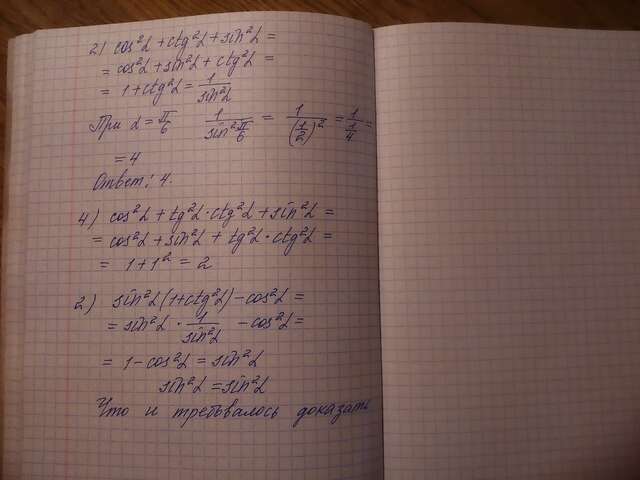 2) cos²α + ctg²α + sin²α =
= cos²α + sin²α + ctg²α =
= 1 + ctg²α = 1/sin²α
При α = π/6 1/sin²π/6 = 1/(1/2)² = 1/1/4 =
= 4
Ответ: 4.
4) cos²α + tg²α · ctg²α + sin²α =
= cos²α + sin²α + tg²α · ctg²α =
= 1 + 1² = 2
2) sin²α (1 + ctg²α) - cos²α =
= sin²α · 1/sin²α - cos²α =
= 1 - cos²α = sin²α
sin²α = sin²α
Что и требовалось доказать